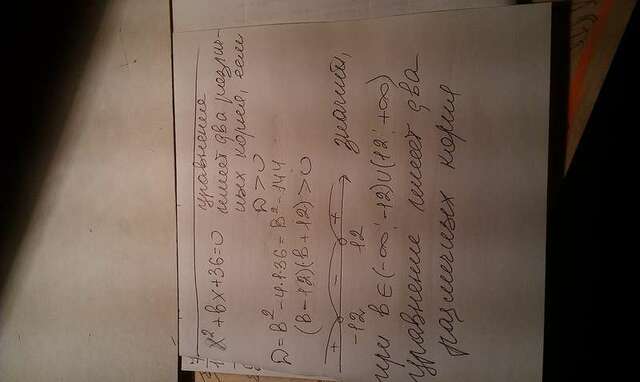 x²+bx+36=0 уравнение
имеет два различ-
ных корня, если
D>0
D=b²-4·1·36=b²-144
(b-12)(b+12)>0
+ - +
-12 12 значит,
при b∈(-∞;-12)∪(12;+∞)
уравнение имеет два
различных корня